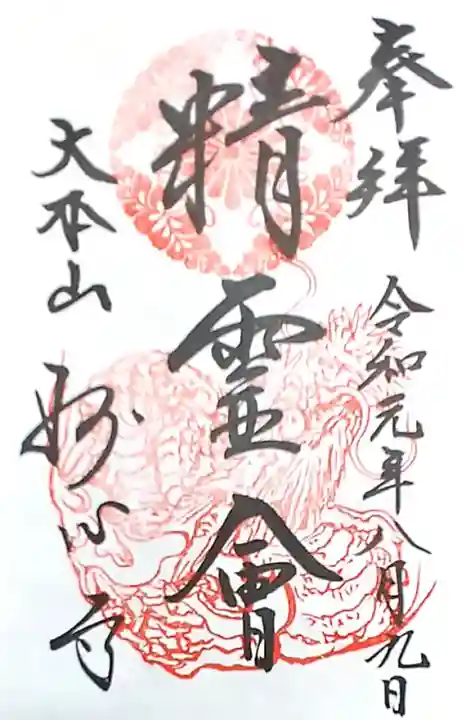 奉拝 令和元年八月九日
精霊會
大本山 妙心寺